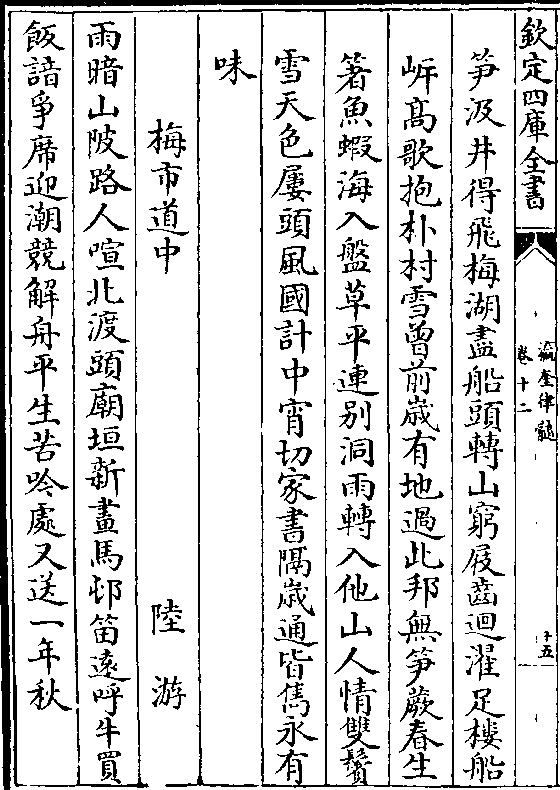 欽定四庫全書
瀛奎律髓
卷十二
十五
笋汲井得飛梅湖盡船頭轉山窮屐齒迴濯足樓船
㟁髙歌抱朴村雪曽前歳有地過此邦無笋蕨春生
箸魚蝦海入盤草平連别洞雨轉入他山人情雙鬢
雪天色屢頭風國計中宵切家書隔歳通皆雋永有
味
梅市道中
陸游
雨暗山陂路人喧北渡頭廟垣新畫馬邨笛逺呼牛買
飯諳爭席迎潮競解舟平生苦吟處又送一年秋